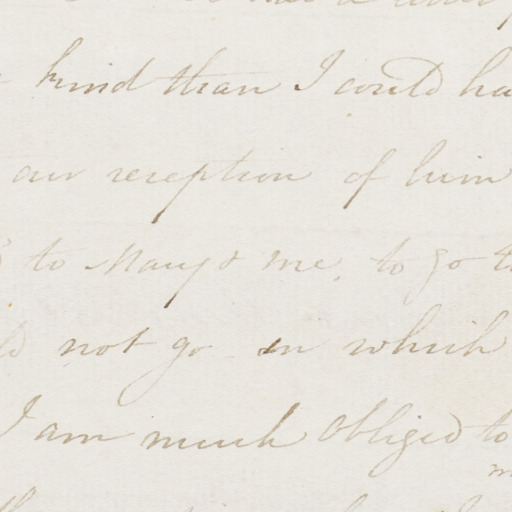 kind than I could ha
our reception of him
to Mary & me, to go t
not go in which
I am much obliged to